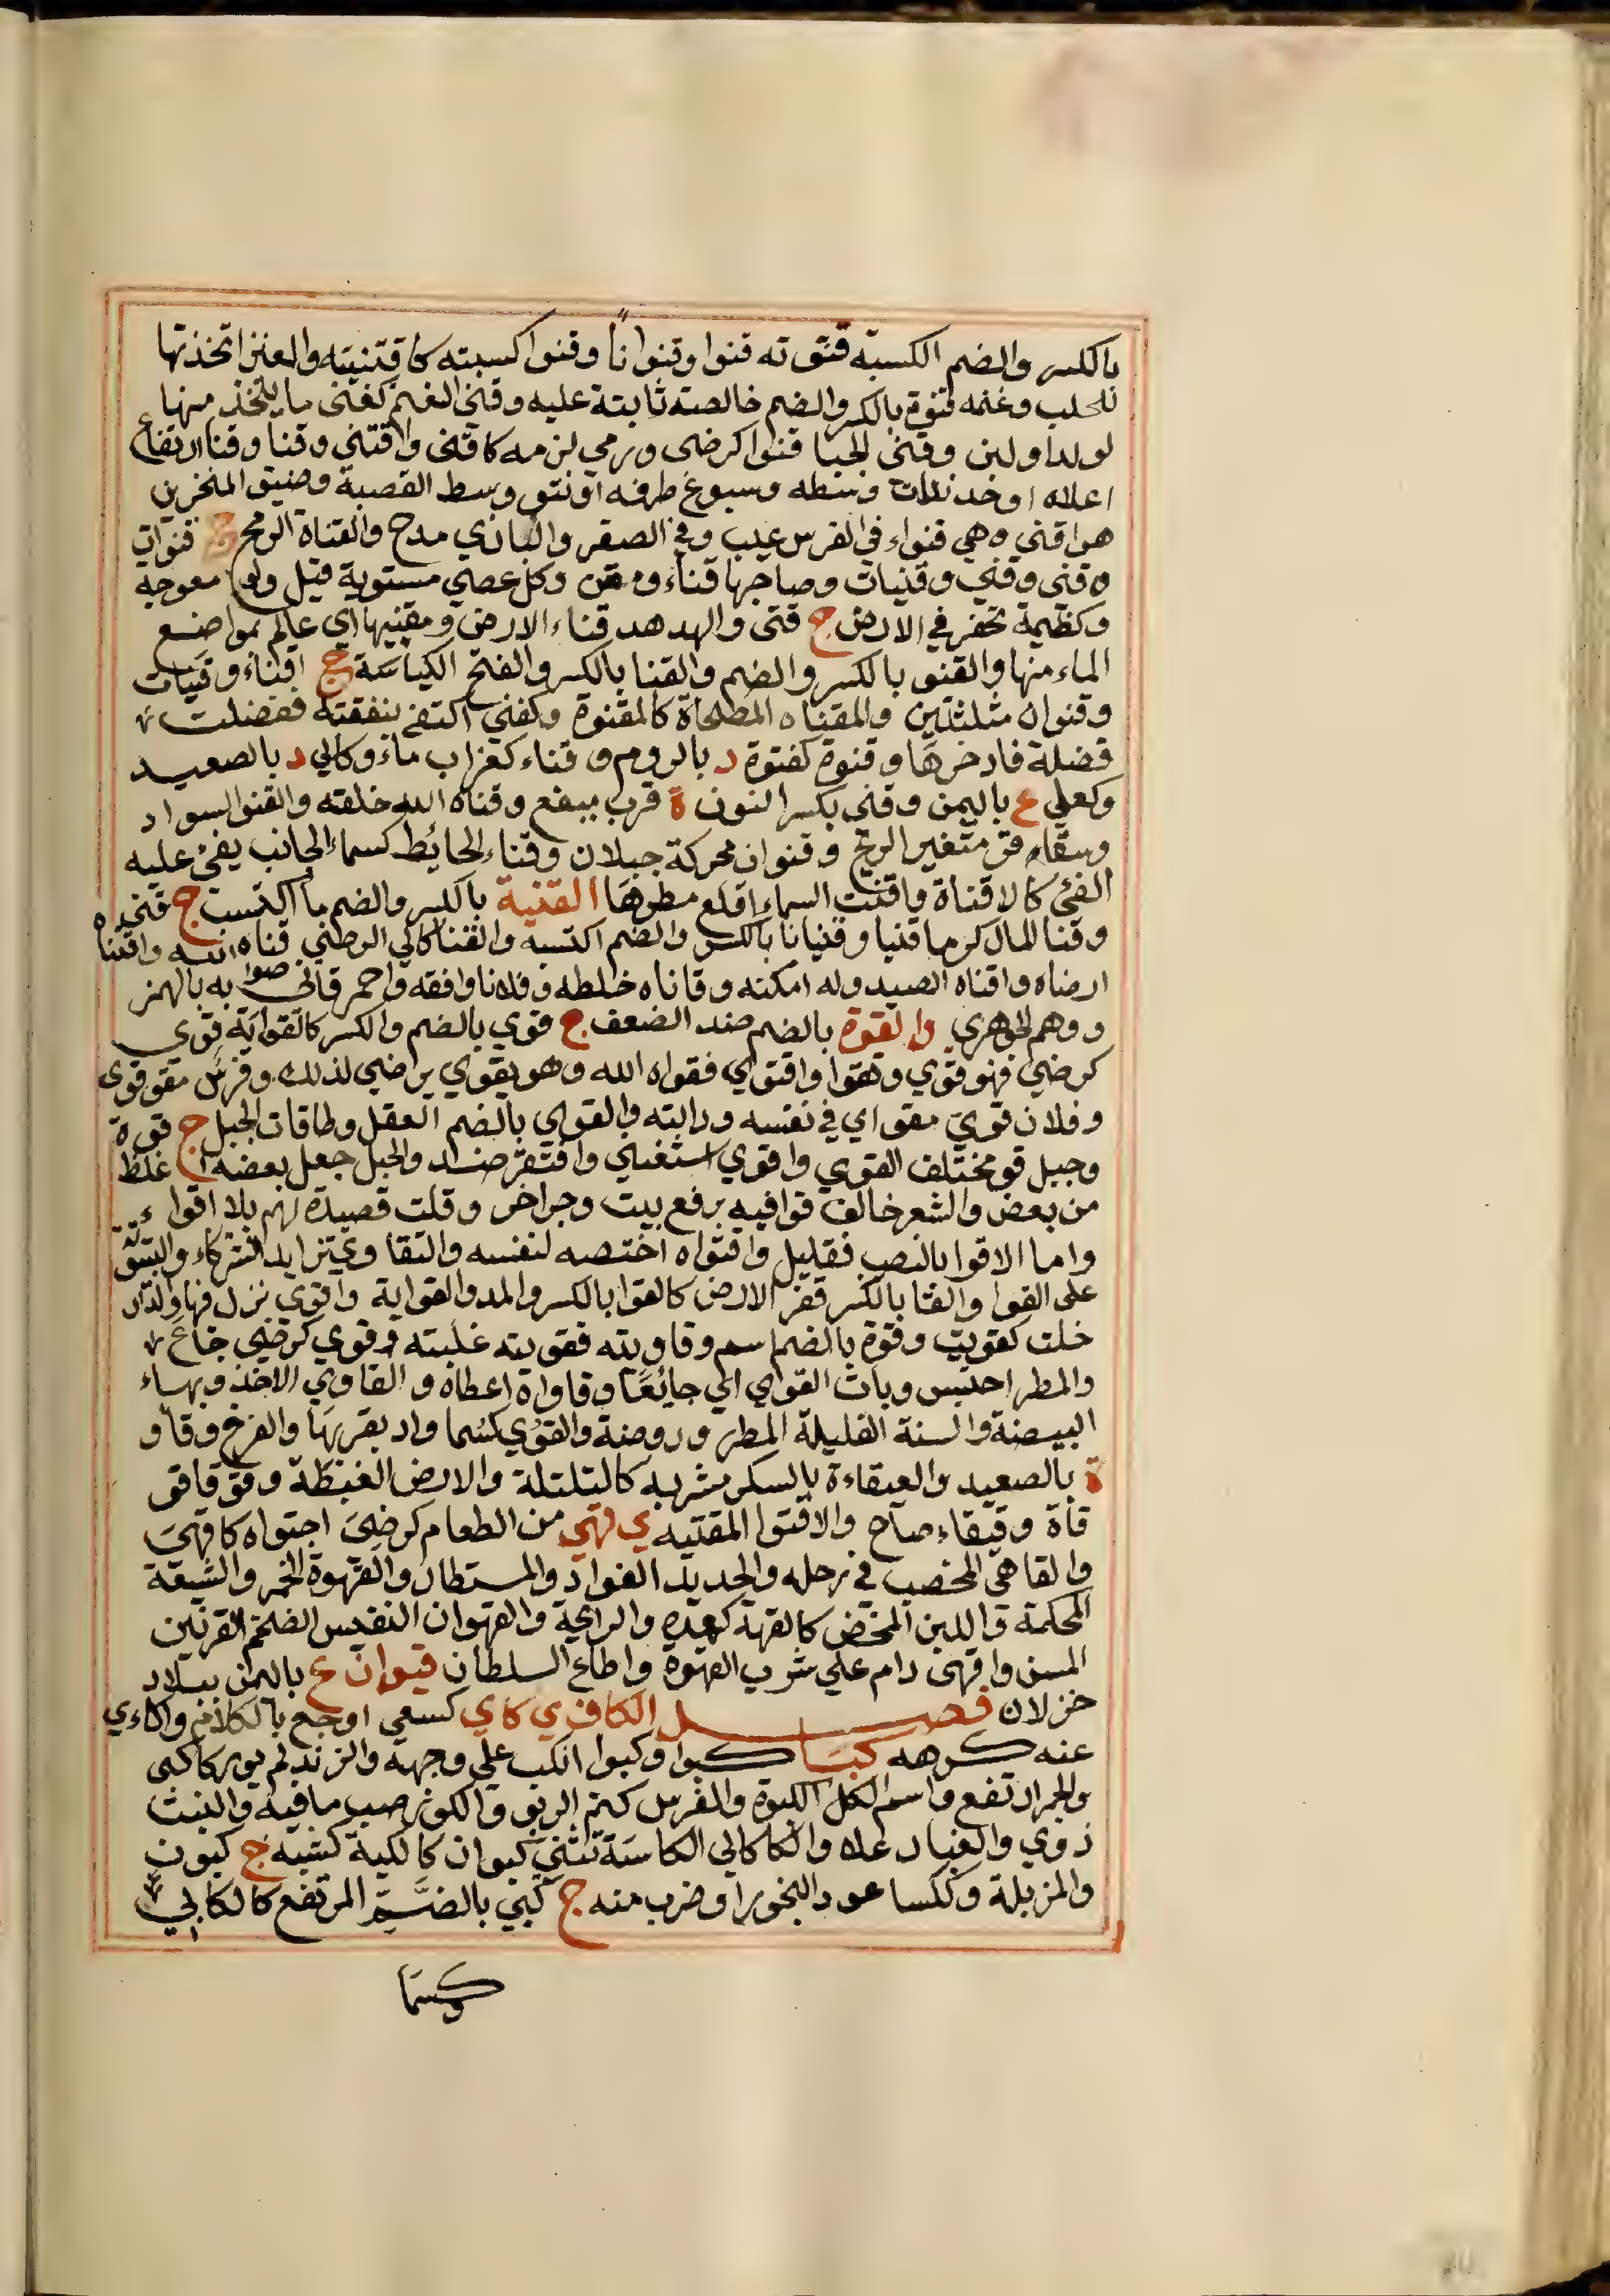 بالكسر والضم الكسبة قنوته قنوا وقنوانا وقنوا كسبته كاقتنيته والعنز اتخذتها
للحلب وغنمه قنوة بالكسر والضم خالصة ثابتة عليه وقنى الغنم كغنى ما يتخذ منها
لولد او لبن وقنى الحيا قنوا كرضى ورمي لزمه كاقنى واقتنى وقنا وقنا ارتفاع
اعلاه او وسطه وسبوغ طرفه او نتو وسط القصبة وضيق المنخرين
هو اقنى وهي قنواء في الفرس عيب وفي الصقر والبازي مدح والقناة الرمح ج قنوات
وقنى وقني وقنيات وصاحبها قناء ومقن وكل عصى مستوية قيل ولو معوجه
وكظيمة تحفر في الارض ج قنى والهدهد قناء الارض ومقنيها اي عالم بمواضع
الماء منها والقنو بالكسر والضم والقنا بالكسر والفتح الكباسة ج اقناء وقنيات
وقنوان مثلثتين والمقناه المطحاة كالمقنوة وكفني اكتفى بنفقته ففضلت
فضلة فادخرها وقنوة كفتوة د بالروم و قناء كغراب ماء وكالي د بالصعيد
وكعلي ع باليمن وقنى بكسر النون ة قرب ميفع وقناه الله خلقه والقنو السواد
وسقاء قن متغير الريح وقنوان محركة جبلان وقناء الحائط كسماء الجانب يفئ عليه
الفئ كالاقناة واقنت السماء اقلع مطرها القنية بالكسر والضم ما اكتسب ج قنى
وقنا المال كرما قنيا وقنيانا بالكسر والضم اكتسبه والقنا كالي الرضى قناه الله واقناه
ارضاه واقناه الصيد وله امكنه وقاناه خلطه وفلانا وافقه واحمر قانى صوابه بالهمز
ووهم الجوهري والقوة بالضم ضد الضعف ج قوي بالضم والكسر كالقواية قوي
كرضي فهو قوي وتقوا واقتوي فقواه الله وهو يقوي يراضي لذلك وفرس مقو قوى
وفلان قوي مقو اي في نفسه ودابته والقوي بالضم العقل وطاقات الحبل ج قوة
وحبل قو مختلف القوي واقوي استغنى وافتقر ضد والحبل جعل بعضه اغلظ
من بعض والشعر خالف قوافيه برفع بيت وجر اخر وقلت قصيدة لهم بلا اقواء
واما الاقوا بالنصب فقليل واقتواه اختصه لنفسه والتقاوي تزايد الشركاء
على القوا والقا بالكسر قفر الارض كالقوا بالكسر والمد والقواية واقوي نزل فيها والدار
خلت كقويت وقوة بالضم اسم وقاويته فقويته غلبته وقوي كرضي جاع
والمطر احتبس وبات القوي اي جائعا وقاواة اعطاه والقاوي الاخذ وبهاء
البيضة والسنة القليلة المطر وروضة والقوي كسما واد بقربها والفرخ وقاو
ة بالصعيد والعيقاءة بالسكر مشربه كالتلتلة والارض الغيظة وقو قاقو
قاة وقيقاء صاح والاقتوا المقتيه ي قهي من الطعام كرضي اجتواه كاقهي
والقاهي المخصب في رحله والحديد الفواد والمستطار والقهوة الخمر والشبعة
المحكمة واللبن المحض كالقهة كعدة والرائحة والقهوان التيس الضخم القرنين
المسن واقهى دام علي شرب القهوة واطاع السلطان قيوان ع باليمن ببلاد
خولان فصل الكاف ي كاي كسعي اوجع بالكلام واكاءي
عنه كرهه كبا كبوا وكبوا انكب على وجهه والزند لم يور كاكبى
والجمر ارتفع واسم الكل الكبوة والفرس كتم الربو والكوز صب ما فيه والنبت
ذوي والغبار علا والكا كالي الكاسة تثني كبوان كالكبة كشبه ج كبون
والمزبلة وككسا عود البخور او ضرب منه ج كبي بالضم المرتفع كالكابي
وكسما